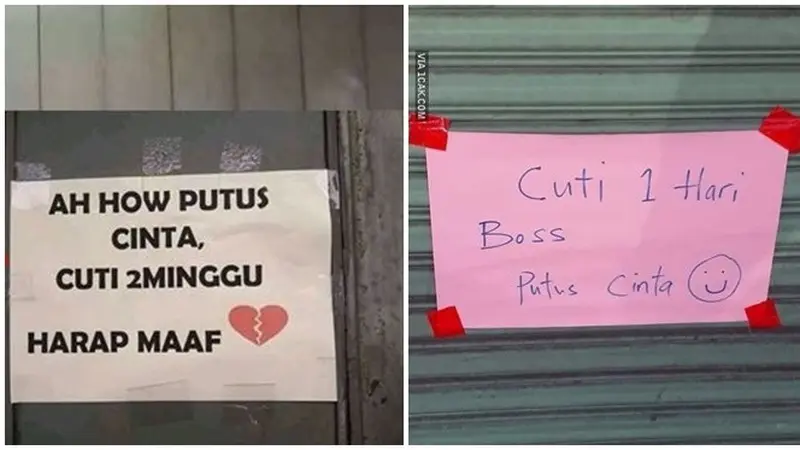 AH HOW PUTUS
CINTA,
CUTI 2MINGGU
HARAP MAAF
VIA 1CAK.COM
Cuti 1 Hari
Boss
Putus Cinta